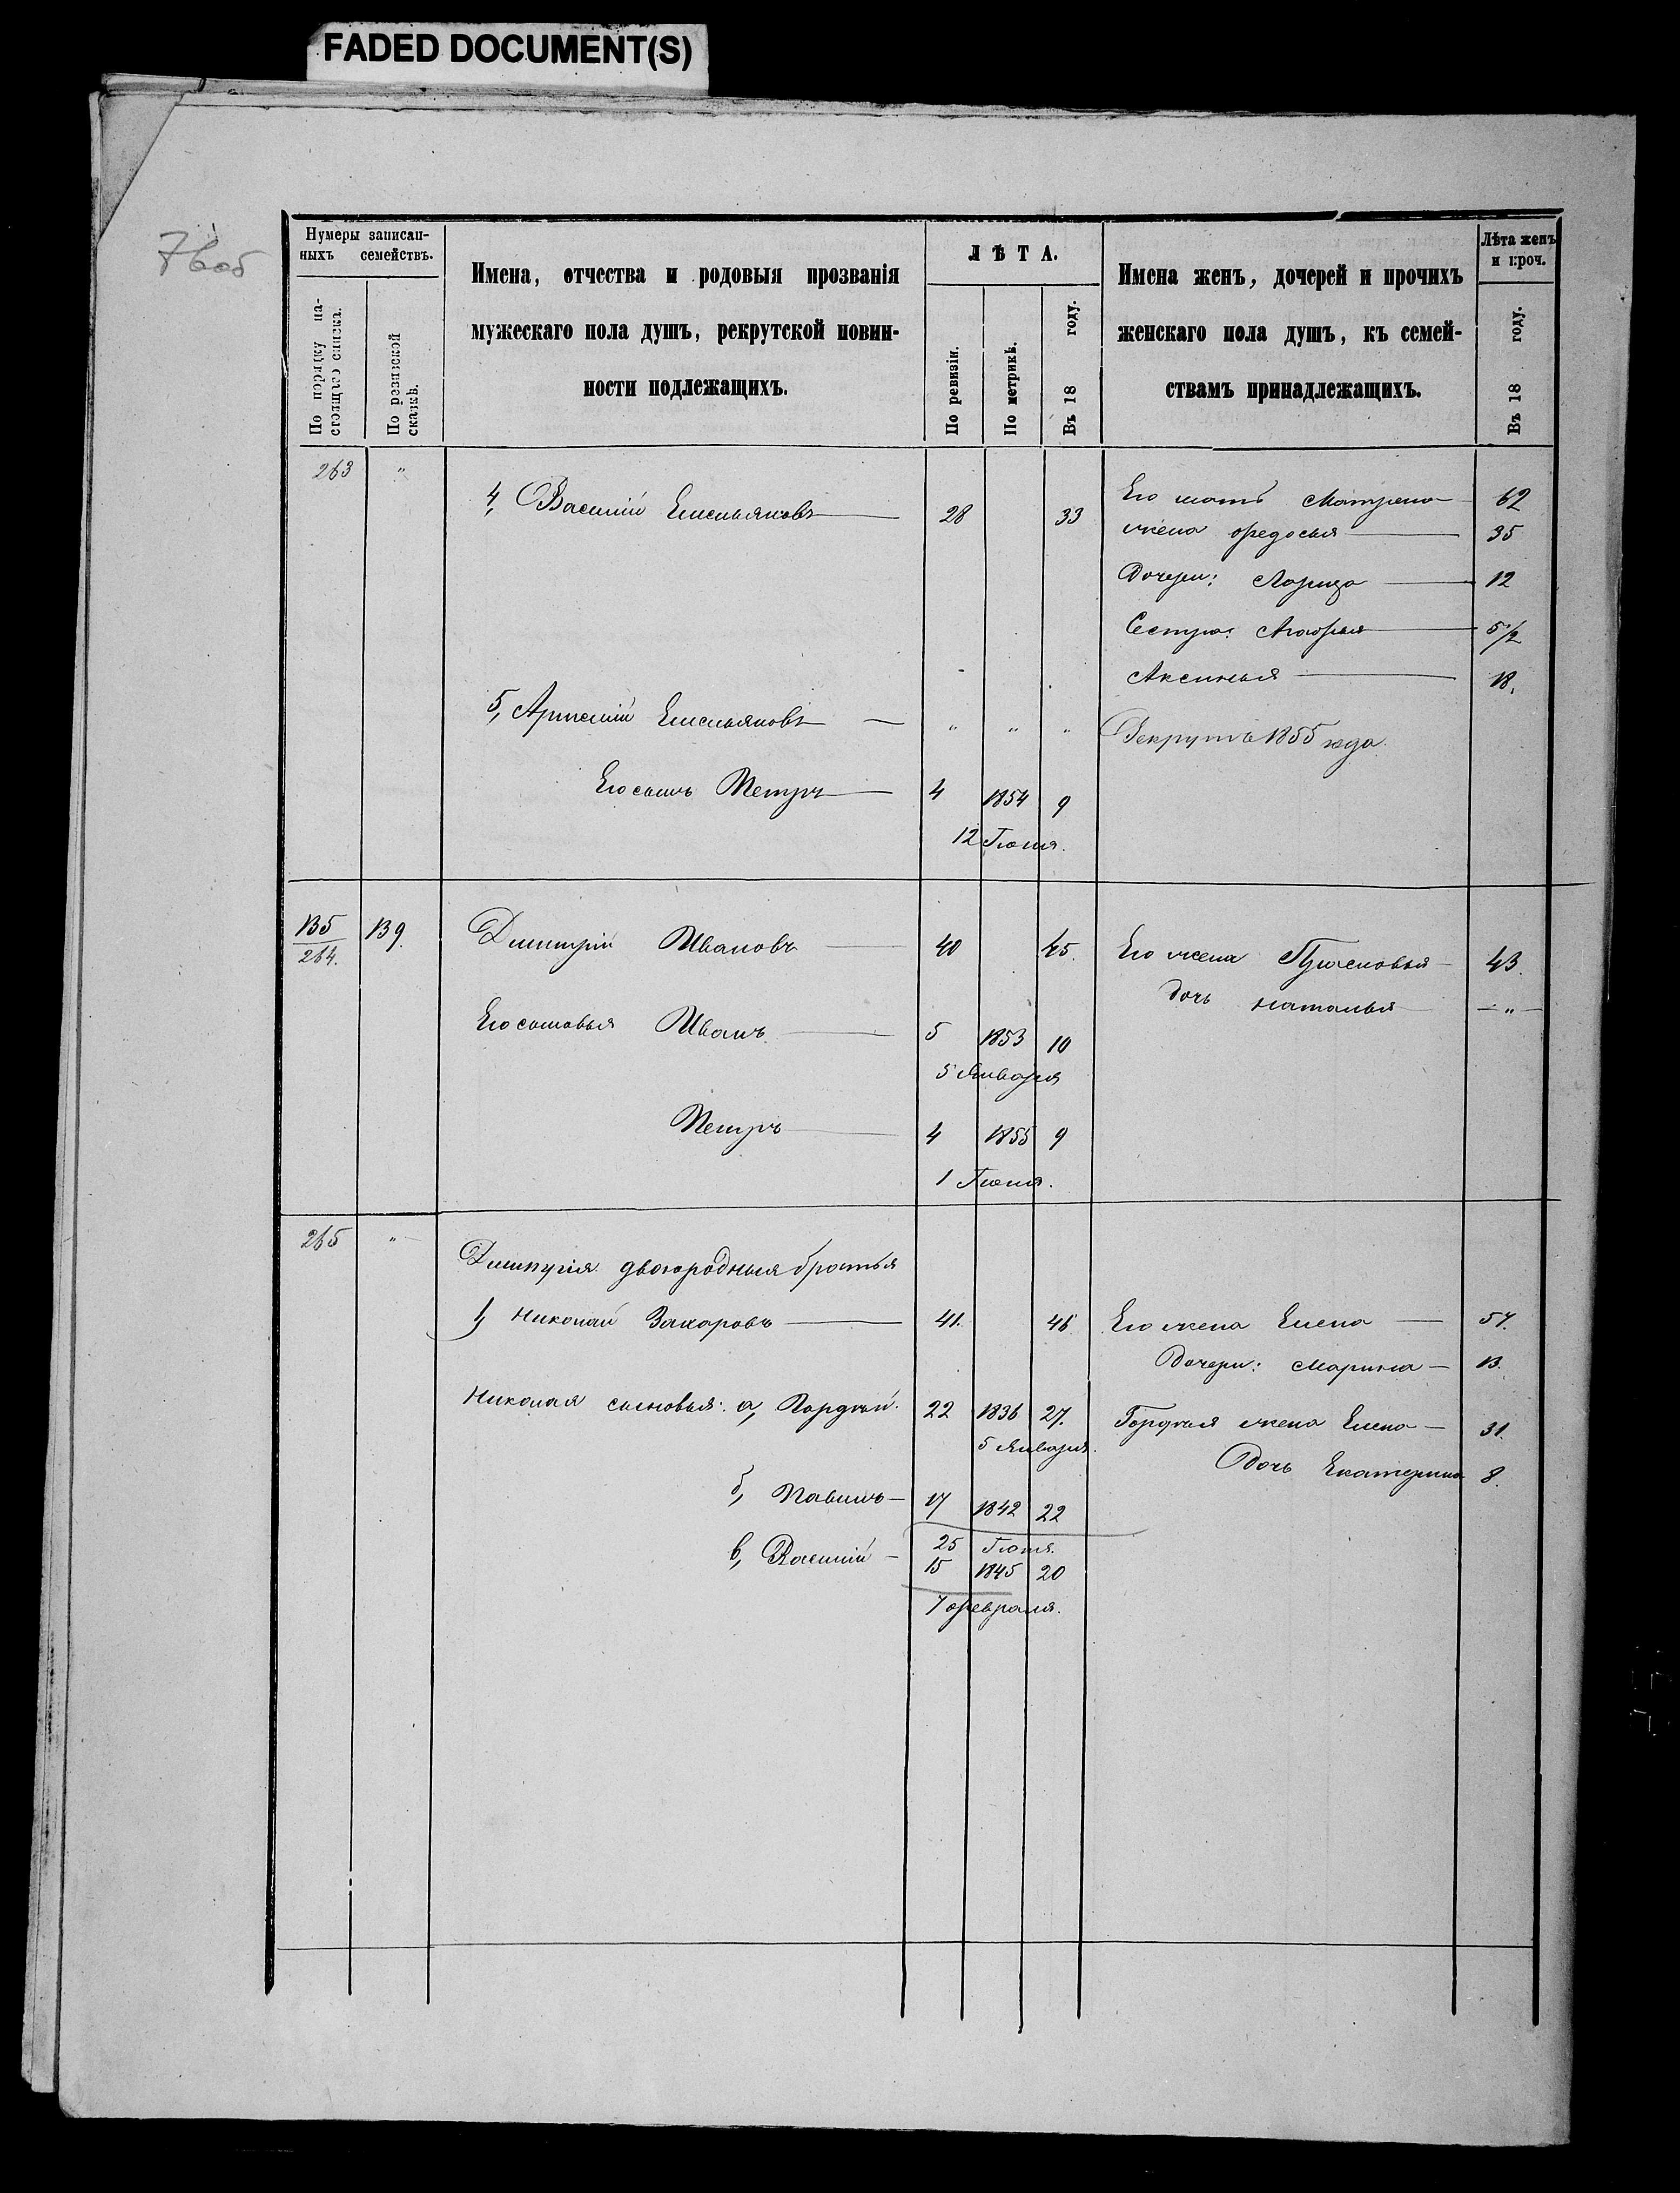 FADED DOCUMENT(S)
76об
Нумеры записан-
ныхъ семействъ.
По порядку на-
стоящаго списка.
По ревизской
сказкѣ.
Имена, отчества и родовыя прозванія
мужескаго пола душъ, рекрутской повин-
ности подлежащихъ.
ЛѢТА.
По ревизіи.
По метрикѣ.
Въ 18 году.
Имена женъ, дочерей и прочихъ
женскаго пола душъ, къ семей-
ствамъ принадлежащихъ.
Лѣта женъ
и проч.
Въ 18 году.
263 "
4, Василій Емельяновъ 28 33 Его мать Матрена 62
жена Ѳедосья 35
Дочери: 12
Сестра: 5/2
Аксинья 18.
5, Артемій Емельяновъ " " " Рекрутъ 1855 года.
Его сынъ Петръ 4 1854 9
12 Іюня.
135 139.
264.
Дмитрій Ивановъ 40 45. Его жена Прасковья 43.
дочь Наталья — " —
Его сыновья Иванъ 5 1853 10
5 Января
Петръ 4 1855 9
1 Іюня.
265 "
Дмитрія двоюродныя братья
1, Николай Захаровъ 41. 46 Его жена Елена 57.
Дочери: Марина 13.
Николая сыновья: а, Гордѣй 22 1836 27. Гордѣя жена Елена 31.
5 Января. Дочь Екатерина 8.
б, Павелъ 17 1842 22
25 Іюня.
в, Василій 15 1845 20
7 Февраля.